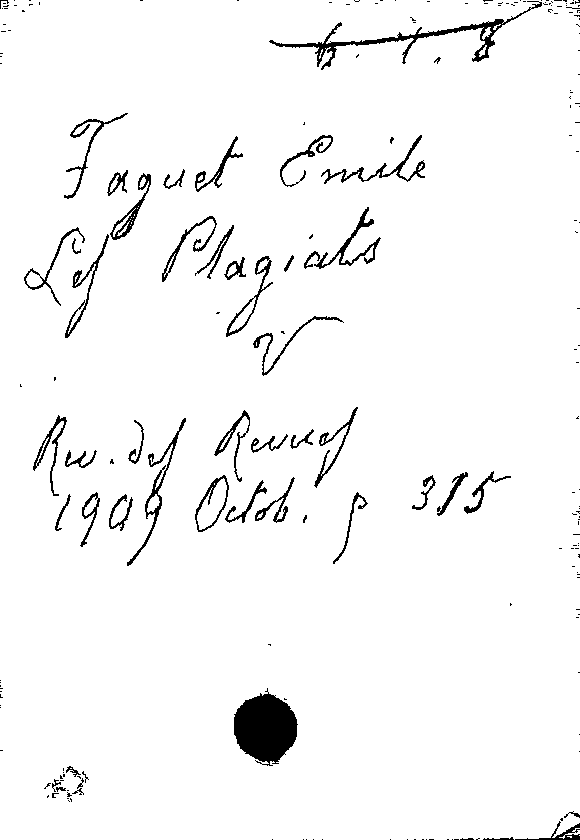 6. 1. 8
Faguet Emile
Les Plagiats
V
Rev. des Revues
1909 Octob. p 315